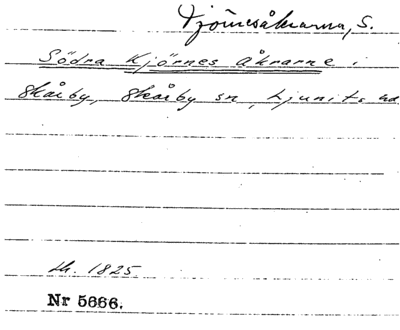 Tjörnesåkrarna, S.
Södra Kjörnes åkrarne i
Skårby, Skårby sn, Ljunits hd
Lh. 1825
Nr 5666.